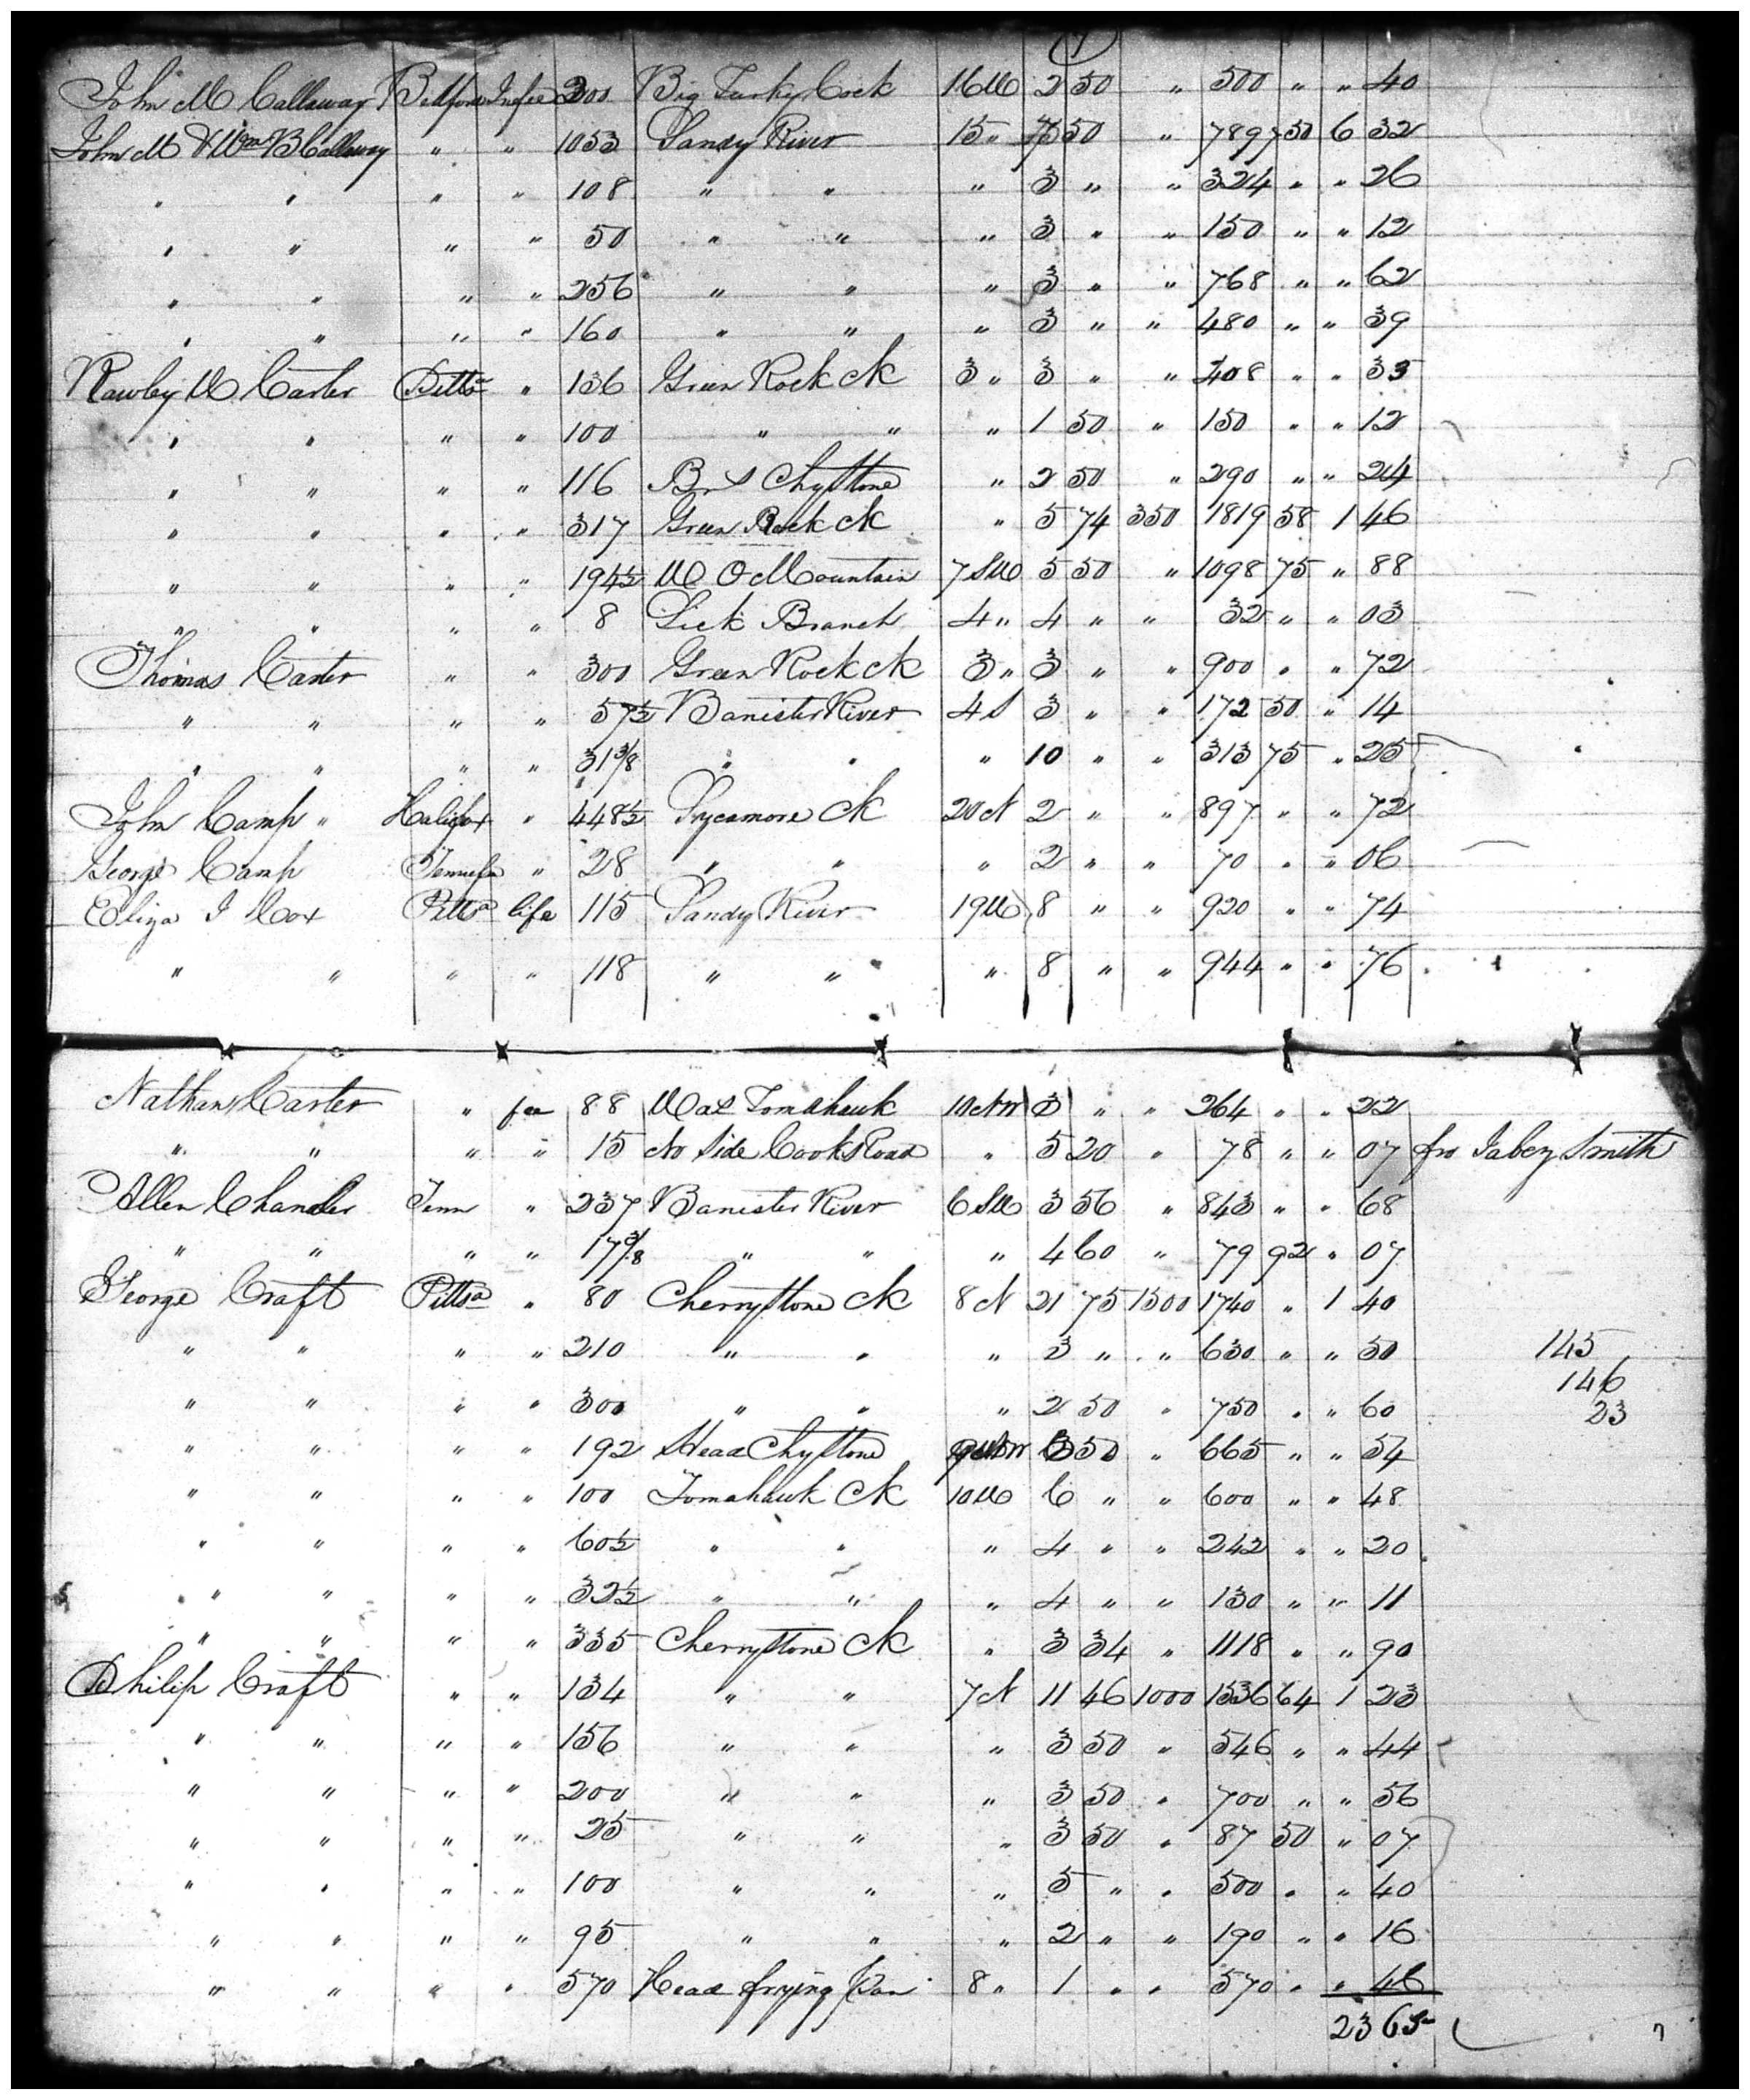 John W Callaway Bedford In fee 200 Big Turky Cock 16 W 2 50 " 500 " " 40
John M & Wm B Callaway " " 1053 Sandy River 15 " 7 50 " 7897 50 6 32
" " " " 108 " " " 3 " " 324 " " 26
" " " " 50 " " " 3 " " 150 " " 12
" " " " 256 " " " 3 " " 768 " " 62
" " " " 160 " " " 3 " " 480 " " 39
Rawley W Carter Pitts " 136 Green Rock Ck 3 " 3 " " 408 " " 33
" " " " 100 " " " 1 50 " 150 " " 12
" " " " 116 Brs Chystone " 2 50 " 290 " " 24
" " " " 317 Green Rock Ck " 5 74 350 1819 58 1 46
" " " " 194½ W O Mountain 7 SW 5 50 " 1098 75 " 88
" " " " 8 Lick Branch 4 " 4 " " 32 " " 03
Thomas Carter " " 300 Green Rock Ck 3 " 3 " " 900 " " 72
" " " " 57½ Banister River 4 S 3 " " 172 50 " 14
" " " " 31 3/8 " " " 10 " " 313 75 " 25
John Camp " Halifax " 448½ Sycamore Ck 20 N 2 " " 897 " " 72
George Camp " 28 " " " 2 " " 70 " " 06
Eliza J Cox Pittsa life 115 Sandy River 19 W 8 " " 920 " " 74
" " " " 118 " " " 8 " " 944 " " 76
Nathan Carter " fee 88 Was Tomahawk 10 NW 3 " " 264 " " 22
" " " " 15 No Side Cooks Road " 5 20 " 78 " " 07 fro Jabez Smith
Allen Chandler Tenn " 237 Banister River 6 SW 3 56 " 843 " " 68
" " " " 17 3/8 " " " 4 60 " 79 92 " 07
George Craft Pittsa " 80 Cherrystone Ck 8 N 21 75 1500 1740 " 1 40
" " " " 210 " " " 3 " " 630 " " 50 145
146
" " " " 300 " " " 2 50 " 750 " " 60 23
" " " " 192 Head Chystone 3 50 " 665 " " 54
" " " " 100 Tomahawk Ck 10 W 6 " " 600 " " 48
" " " " 60½ " " " 4 " " 242 " " 20
" " " " 32½ " " " 4 " " 130 " " 11
" " " " 335 Cherrystone Ck " 3 34 " 1118 " " 90
Philip Craft " " 134 " " 7 N 11 46 1000 1536 64 1 23
" " " " 156 " " " 3 50 " 546 " " 44
" " " " 200 " " " 3 50 " 700 " " 56
" " " " 25 " " " 3 50 " 87 50 " 07
" " " " 100 " " " 5 " " 500 " " 40
" " " " 95 " " " 2 " " 190 " " 16
" " " " 570 Head frying Pan 8 " 1 " " 570 " " 46
23 65